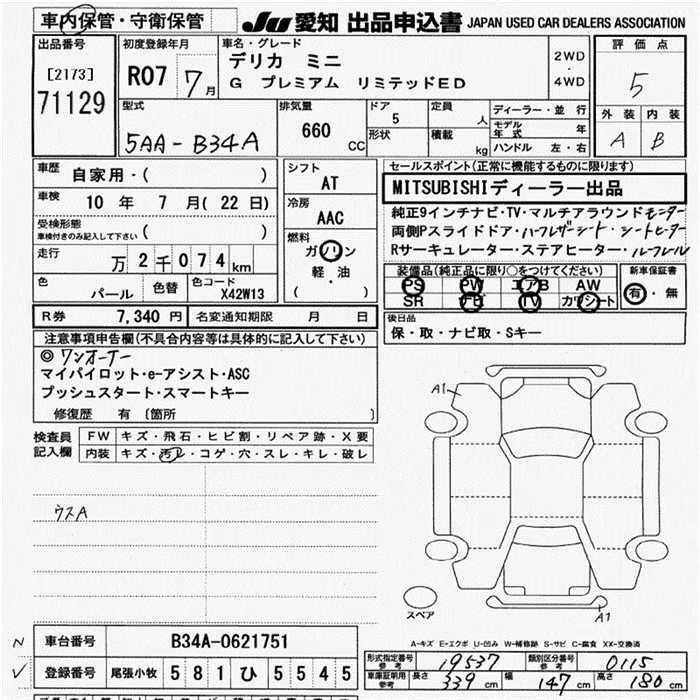 車内保管・守衛保管 JU 愛知 出品申込書 JAPAN USED CAR DEALERS ASSOCIATION
出品番号 初度登録年月 車名・グレード 評価点
[2173] 71129 R07 7月 デリカ ミニ 2WD・4WD 5
G プレミアム リミテッドED
型式 排気量 ドア 定員 ディーラー・並行 外装 内装
5AA-B34A 660 CC 5 人 モデル年式 年 A B
形状 積載 kg ハンドル 左・右
車歴 自家用・( ) シフト AT セールスポイント(正常に機能するものに限り)
MITSUBISHIディーラー出品
車検 10年 7月(22日) 冷房 AAC
純正9インチナビ・TV・マルチアラウンドモニター
受検形態 車検付きのみ記入して下さい( ) 燃料 ガソリン
両側Pスライドドア・ハーフレザーシート・シートヒーター
走行 万2千074km 軽・油 ( )
Rサーキュレーター・ステアヒーター・ルーフレール
色 パール 色替 色コード X42W13
装備品(純正品に限り○をつけてください) 新車保証書
PS PW エアB AW 有・無
SR ナビ TV カワシート
R券 7,340円 名変通知期限 月 日
後日品
保・取・ナビ取・Sキー
注意事項申告欄(不具合内容等は具体的に記入して下さい)
◎ワンオーナー
マイパイロット・e-アシスト・ASC
プッシュスタート・スマートキー
修復歴 有 〔箇所 〕
検査員記入欄 FW キズ・飛石・ヒビ割・リペア跡・X要
内装 キズ・汚レ・コゲ・穴・スレ・キレ・破レ
A1
ウスA
スペア
A1
A-キズ E-エクボ U-凹み W-補修跡 S-サビ C-腐食 XX-交換済
N 車台番号 B34A-0621751
形式指定番号 参考 19537 類別区分番号 参考 0115
✓ 登録番号 尾張小牧 581 ひ 5545
車庫証明用 参考 長さ 339cm 幅 147cm 高さ 180cm